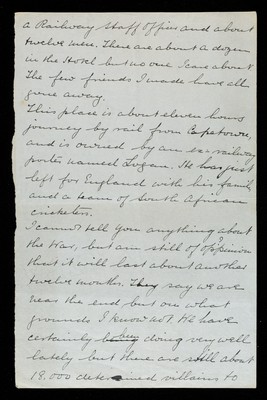 a Railway Staff Officer and about
twelve men. There are about a dozen
in the Hotel but no one I care about &
The few friends I made have all
gone away.
This place is about eleven hours
journey by rail from Capetown,
and is owned by an ex-railway
porter named Logan. He has just
left for England with his family
and a team of South African
cricketers.
I cannot tell you anything about
the War, but am still of opinion
that it will last about another
twelve months. They say we are
near the end but on what
grounds I know not. We have
certainly been doing very well
lately but there are still about
18.000 determined villains to